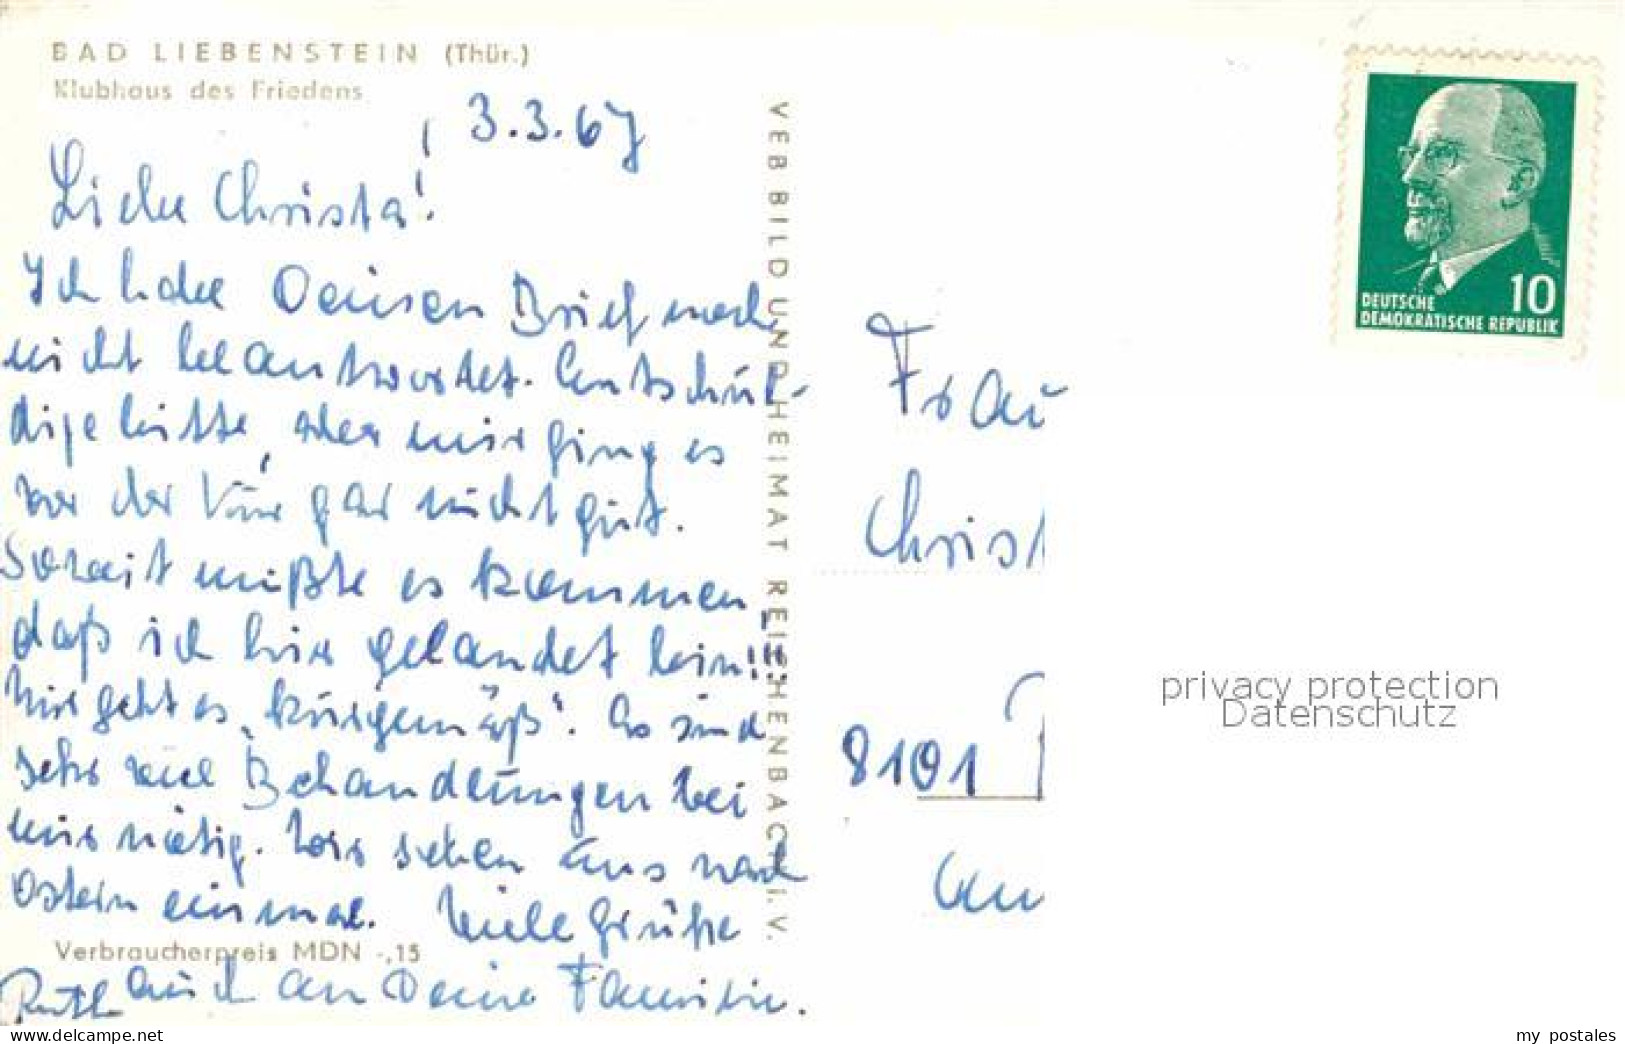 BAD LIEBENSTEIN (Thür.)
Klubhaus des Friedens
3.3.67
Liebe Christa!
Ich habe Deinen Brief noch
nicht beantwortet. Entschul-
dige bitte, aber mir ging es
vor der Kur gar nicht gut.
Soweit mußte es kommen,
daß ich hier gelandet bin!!!
Mir geht es „kurgemäß". Es sind
sehr viel Behandlungen bei
mir nötig. Wir sehen uns nach
Ostern einmal. Viele Grüße
Verbraucherpreis MDN -,15
auch an Deine Familie.
Ruth
VEB BILD UND HEIMAT REICHENBACH I. V.
DEUTSCHE 10
DEMOKRATISCHE REPUBLIK
Frau
Christ
8101
privacy protection
Datenschutz
my postales
www.delcampe.net